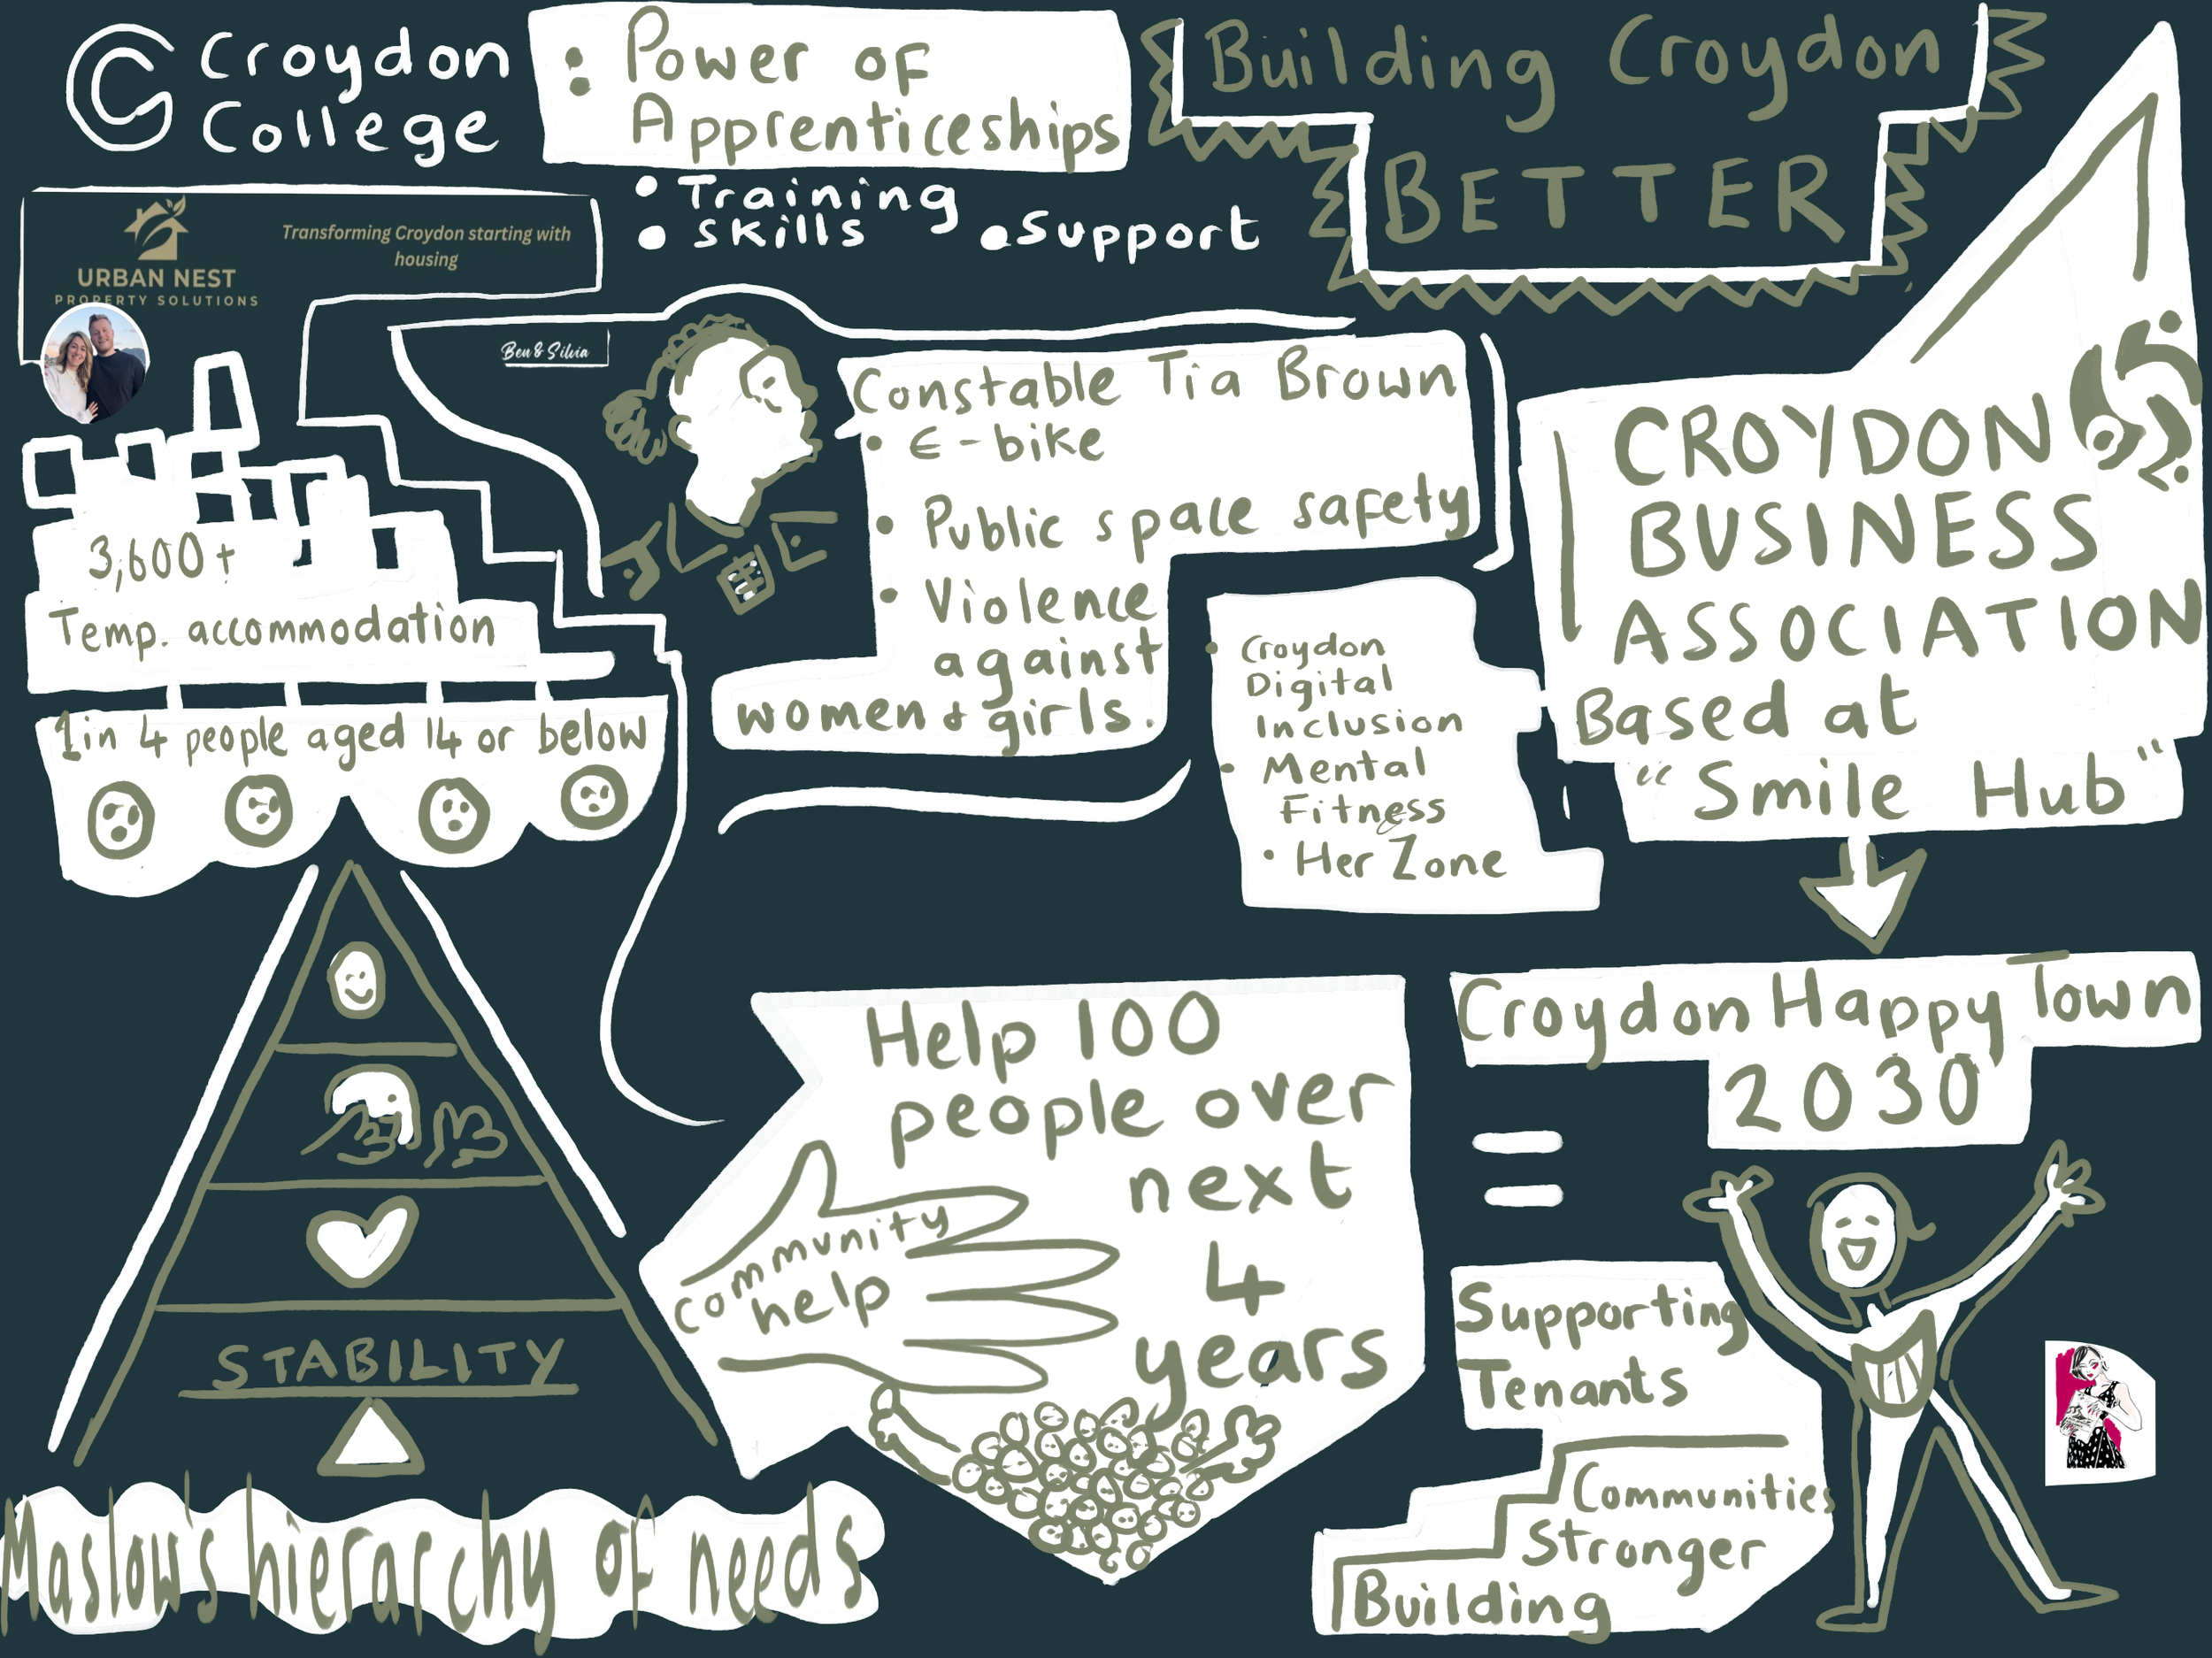 Croydon
College
: Power of
Apprenticeships
• Training
• Skills
• Support
Building Croydon
BETTER
URBAN NEST
PROPERTY SOLUTIONS
Transforming Croydon starting with
housing
Ben & Silvia
3,600+
Temp. accommodation
1 in 4 people aged 14 or below
Constable Tia Brown
• E-bike
• Public space safety
• Violence
against
women & girls.
• Croydon
Digital
Inclusion
• Mental
Fitness
• Her Zone
CROYDON
BUSINESS
ASSOCIATION
Based at
"Smile Hub"
Croydon Happy Town
2030
STABILITY
Maslow's hierarchy of needs
Help 100
people over
next
4
years
community
help
=
Supporting
Tenants
Communities
Stronger
Building